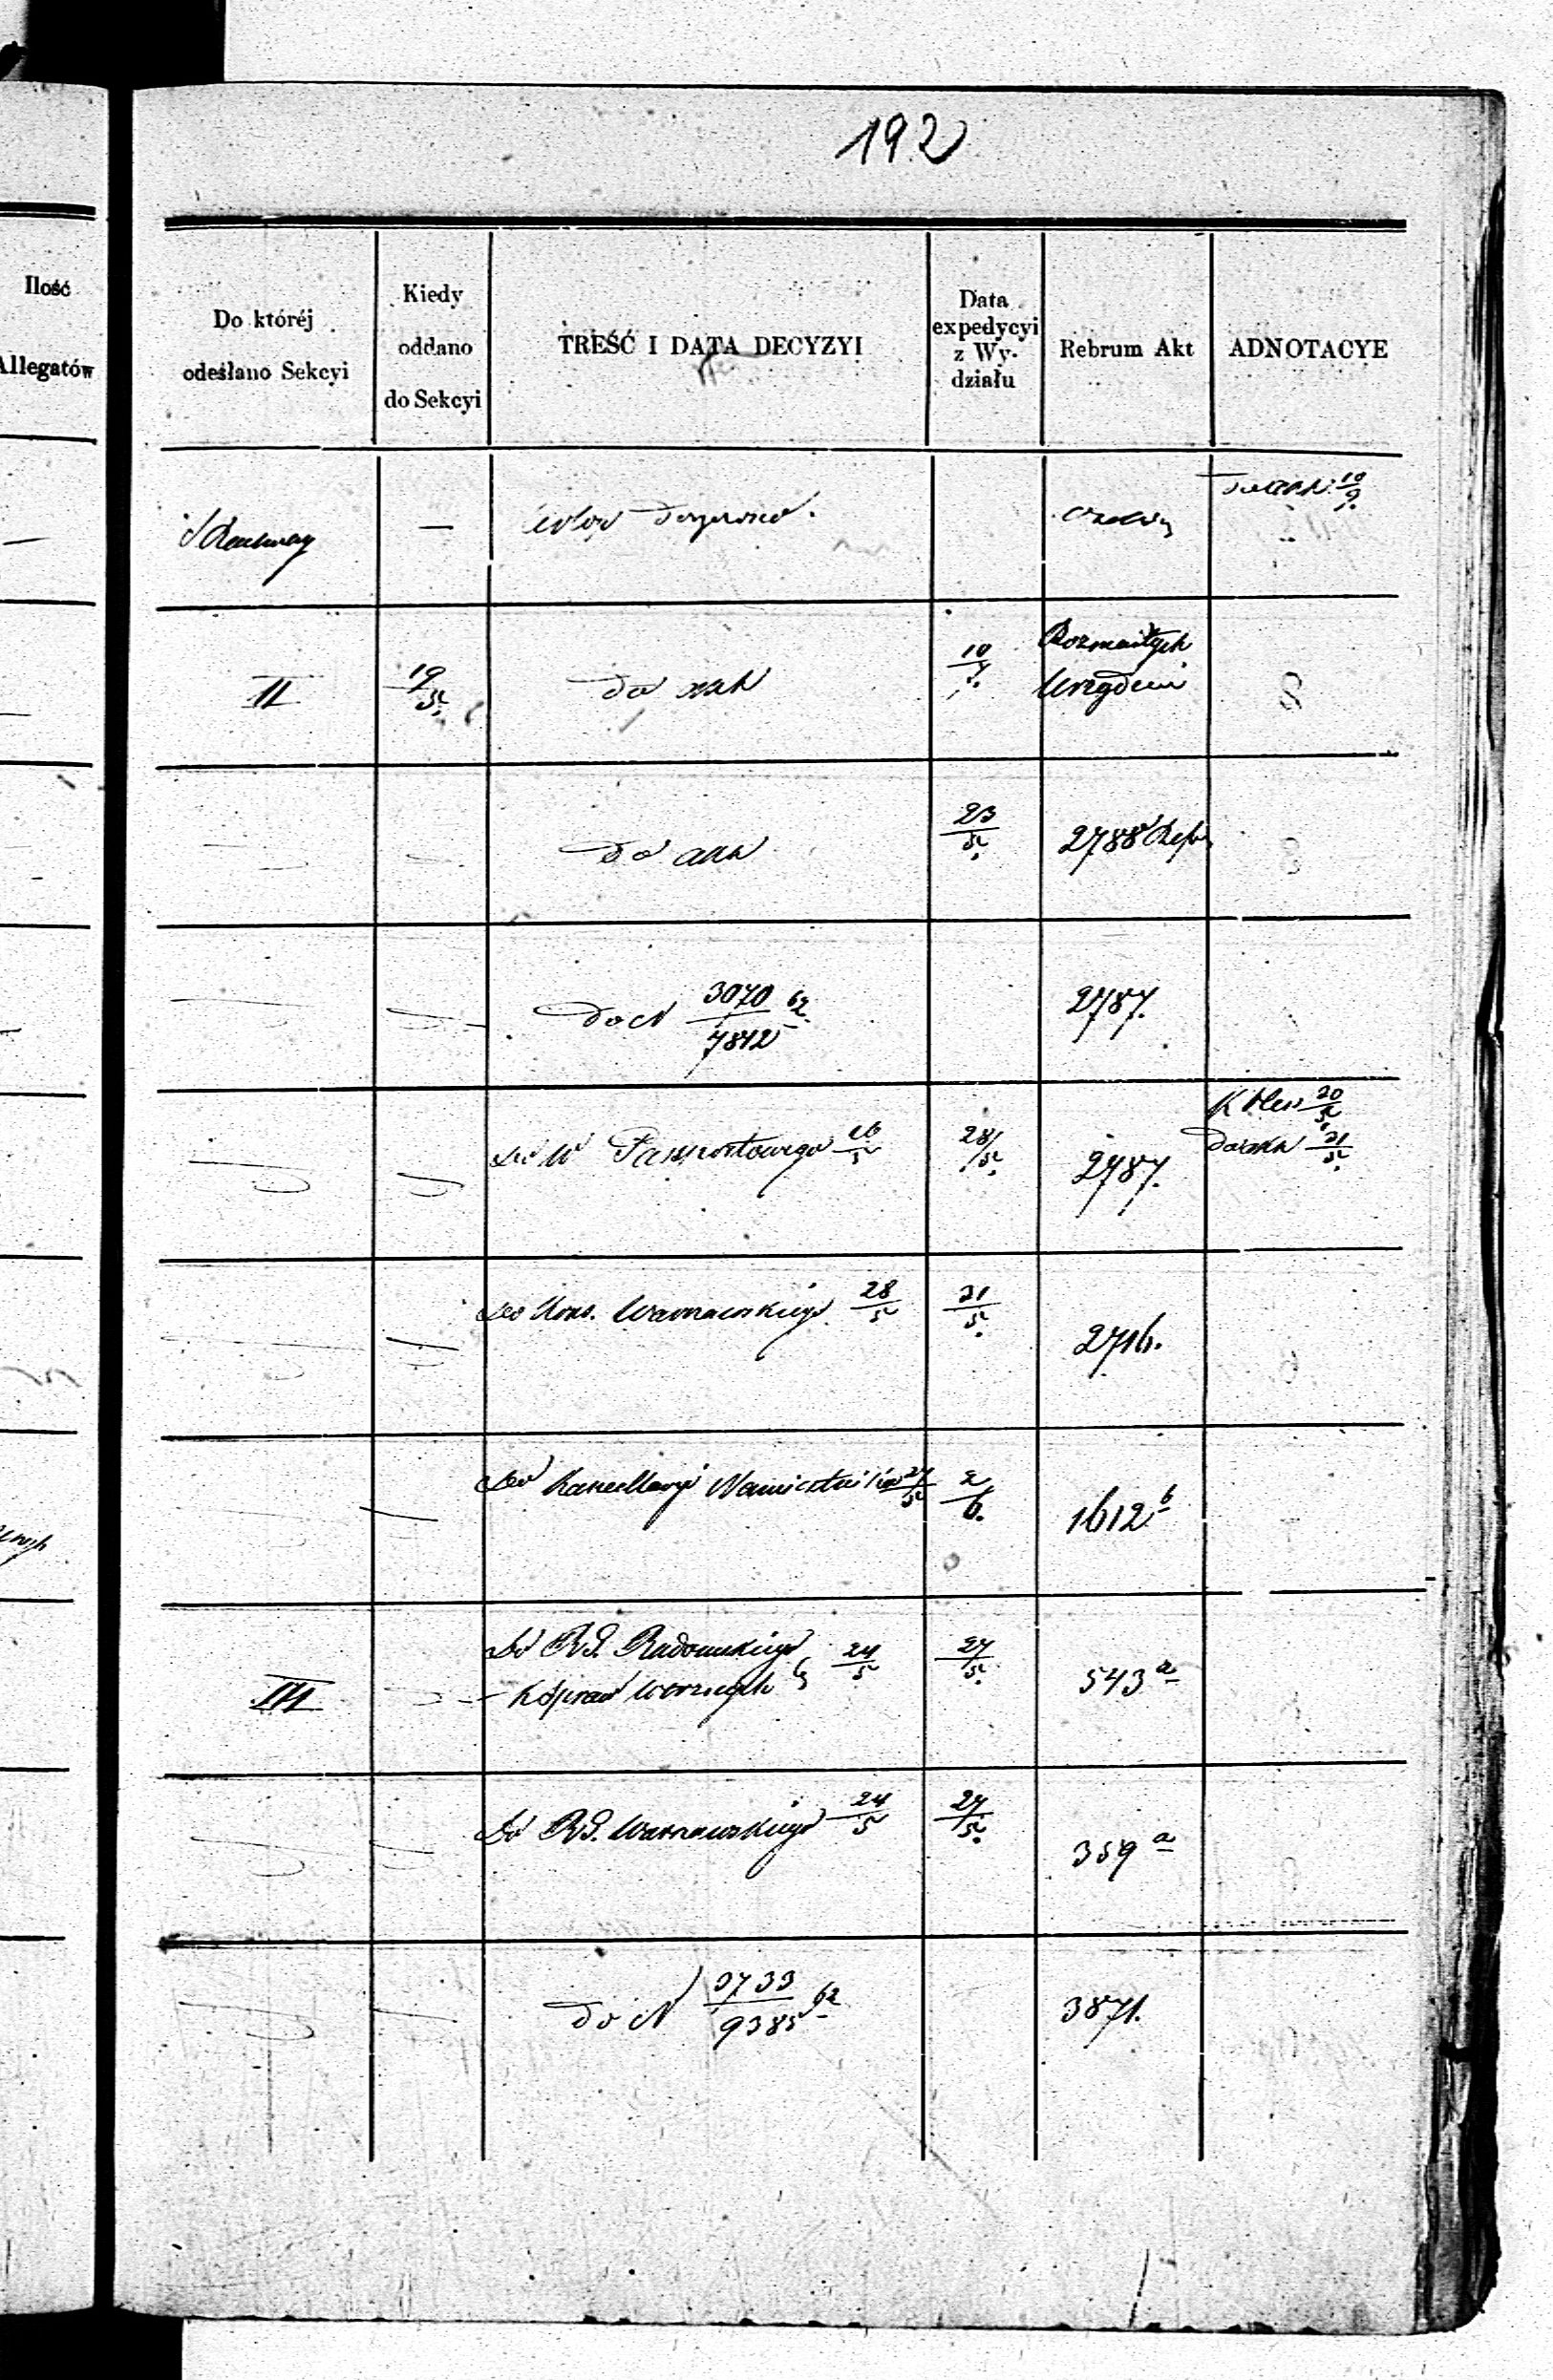 192
Ilość
Allegatów
Do któréj
odesłano Sekcyi
Kiedy
oddano
do Sekcyi
TREŚĆ I DATA DECYZYI
Data
expedycyi
z Wy-
działu
Rebrum Akt
ADNOTACYE
—
10/9
II
19/5
do akt
10/7.
Rozmaitych
Urzędów
do akt
23/5.
2788
do N 3070/7842 62
2787.
Do W Paszportowego 16/5
28/5.
2787.
20/5
do akt 21/5.
Do Kons. Warszawskiego 28/5
31/5.
2716.
Do Kancellaryi Namiestnika 27/5
2/6.
1612 b
III
Do RG. Radomskiego
K Spraw Wewnych 24/5
27/5.
543 a
Do RG. Warszawskiego 24/5
27/5.
359 a
do N 3733/9385 62
3871.